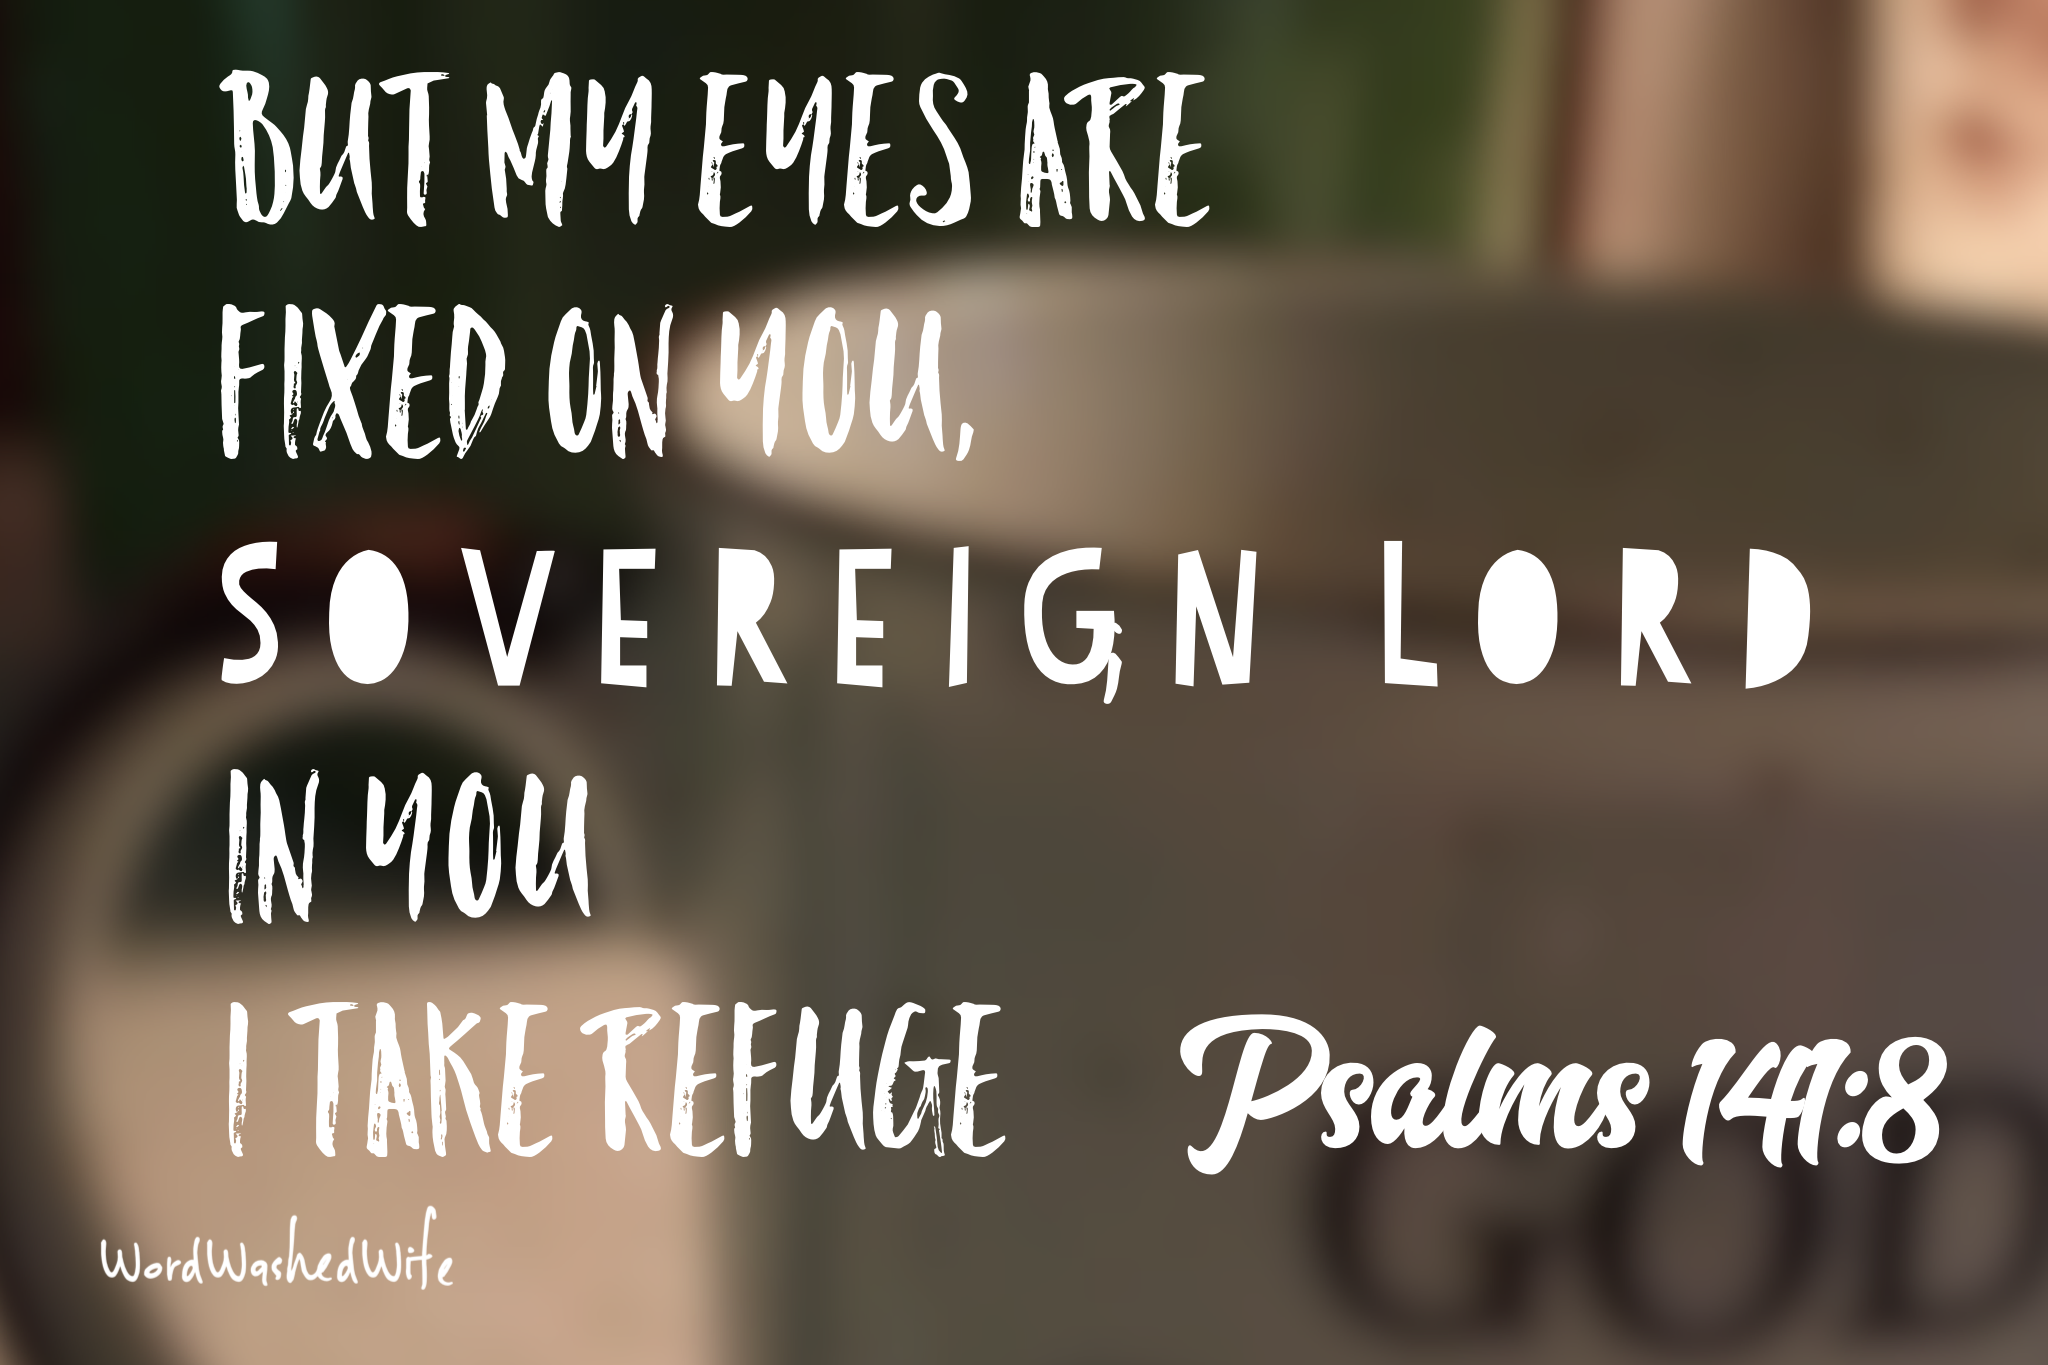 BUT MY EYES ARE
FIXED ON YOU,
SOVEREIGN LORD
;
IN YOU
I TAKE REFUGE
Psalms 141:8
WordWashedWife
GOD